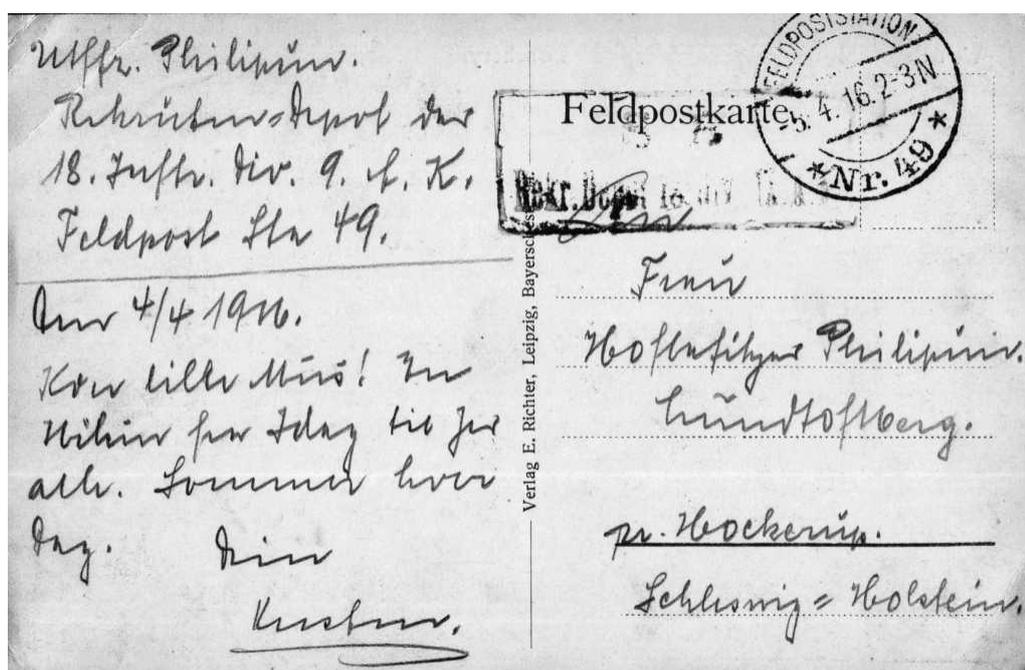 Utffz. Philipsen.
Rekruten=Depot der
18. Inftr. Div. 9. A. K.
Feldpost Sta 49.
Den 4/4 1916.
Kær lille Mus! En
Hilsen fra Idag til Jer
alle. Sommer hver
Dag. Din
Kresten.
Verlag E. Richter, Leipzig,
FELDPOSTSTATION
-5.4.16.2-3N
*Nr. 49*
Feldpostkarte
Rekr. Depot 18. Div.
An
Frau
Hofbesitzer Philipsen.
Lundtoftberg.
pr. Hockerup.
Schleswig=Holstein.